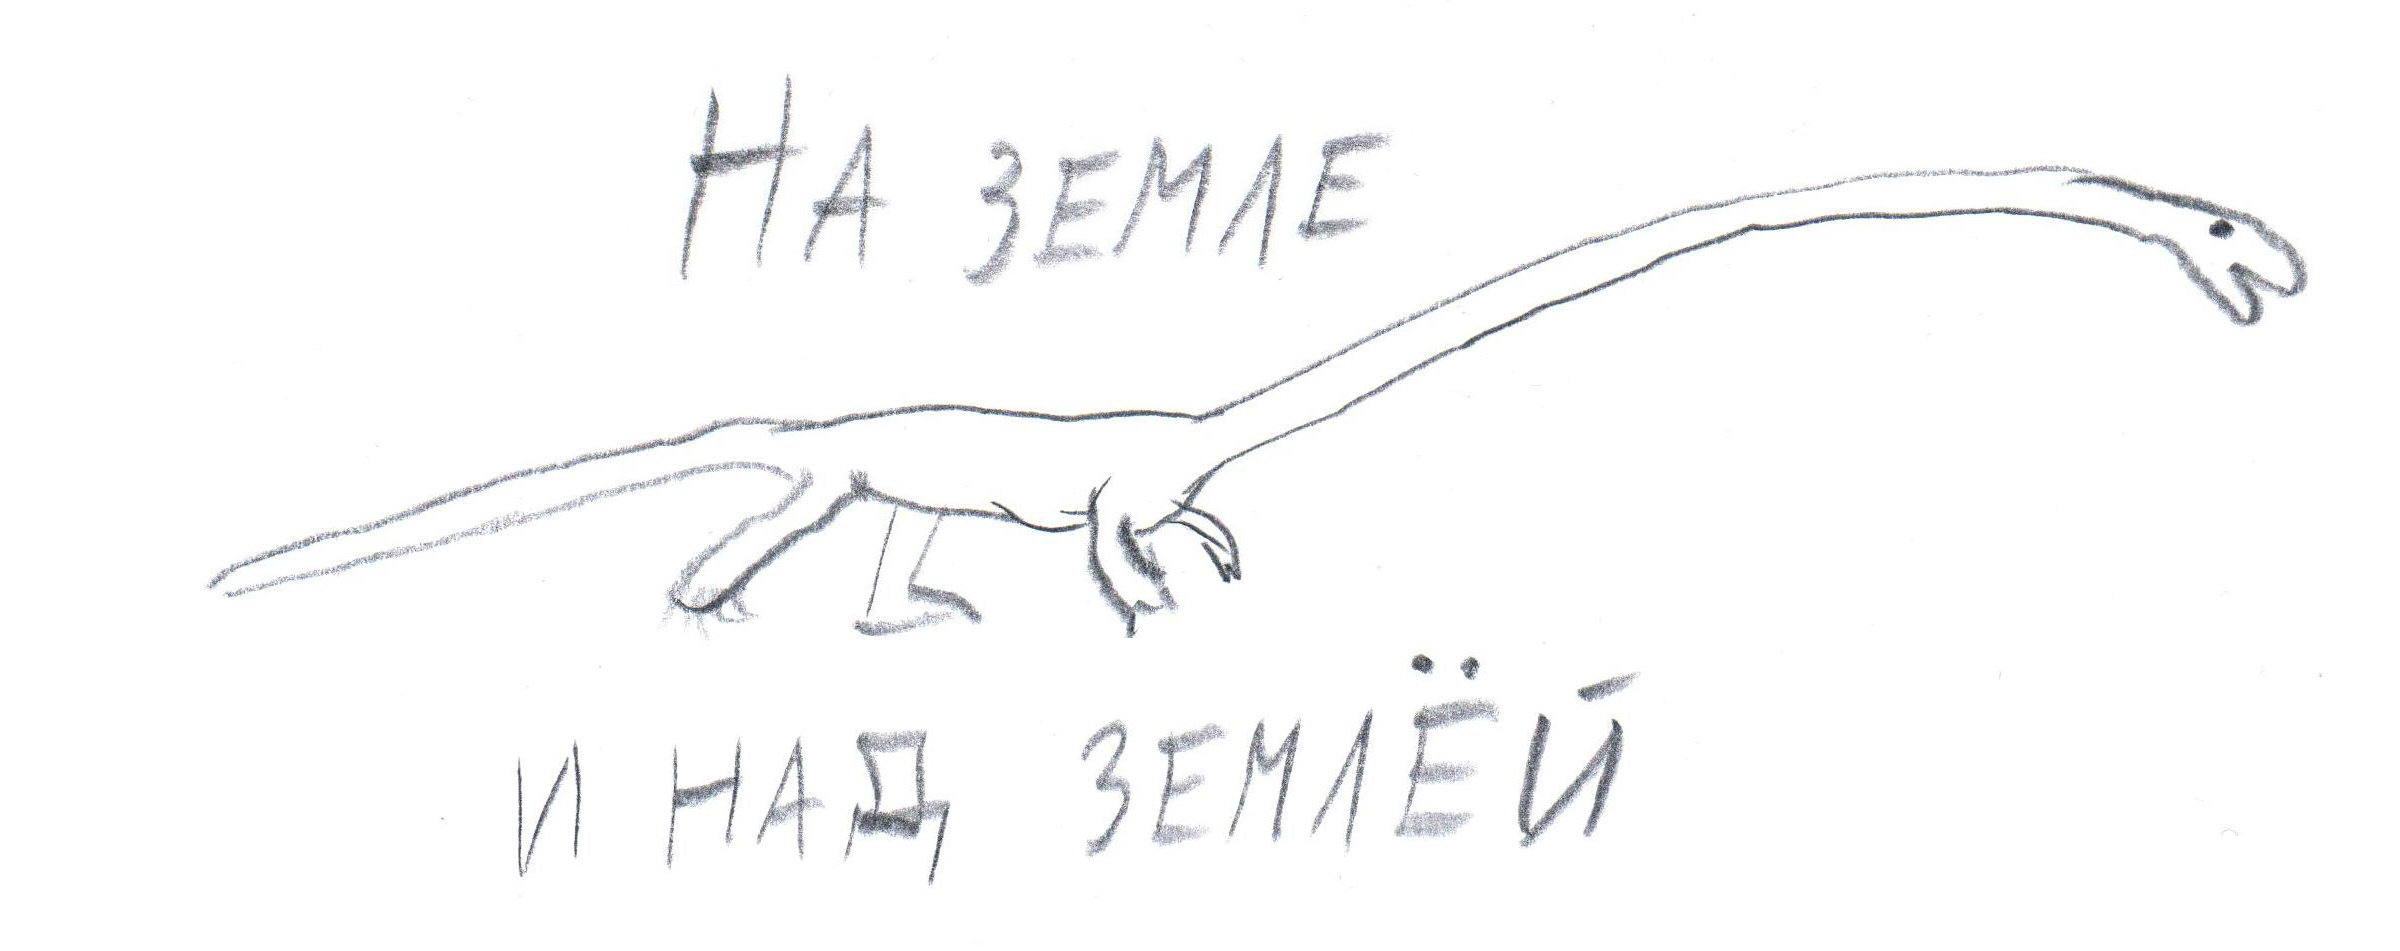 На земле
и над землёй